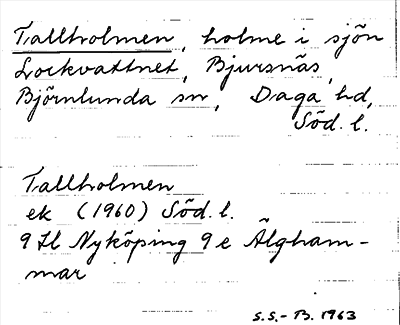 Tallholmen, holme i sjön
Lockvattnet, Bjursnäs,
Björnlunda sn, Daga hd,
Söd. l.
Tallholmen
ek (1960) Söd. l.
9 H Nyköping 9 e Älgham-
mar
S.S.-B. 1963